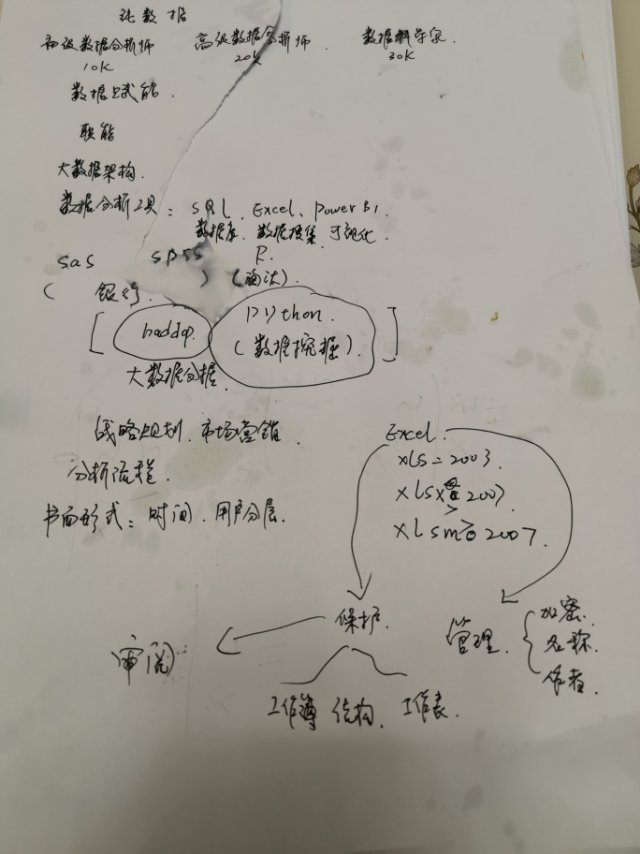 数据
初级数据分析师 高级数据分析师 数据科学家.
10K 20K 30K
数据赋能.
职能
大数据架构.
数据分析工具: SQL、Excel、Power BI.
数据库. 可视化.
sas spss R.
( 银行. ) ( ).
[ haddop python. ]
(数据挖掘)
大数据分据.
战略规划. 市场营销.
分析流程.
书面形式: 时间. 用户分层.
Excel.
xls = 2003.
xlsx 2007.
xlsm 2007.
保护.
审阅
管理. { 加密.
名称.
作者.
工作薄 结构. 工作表.